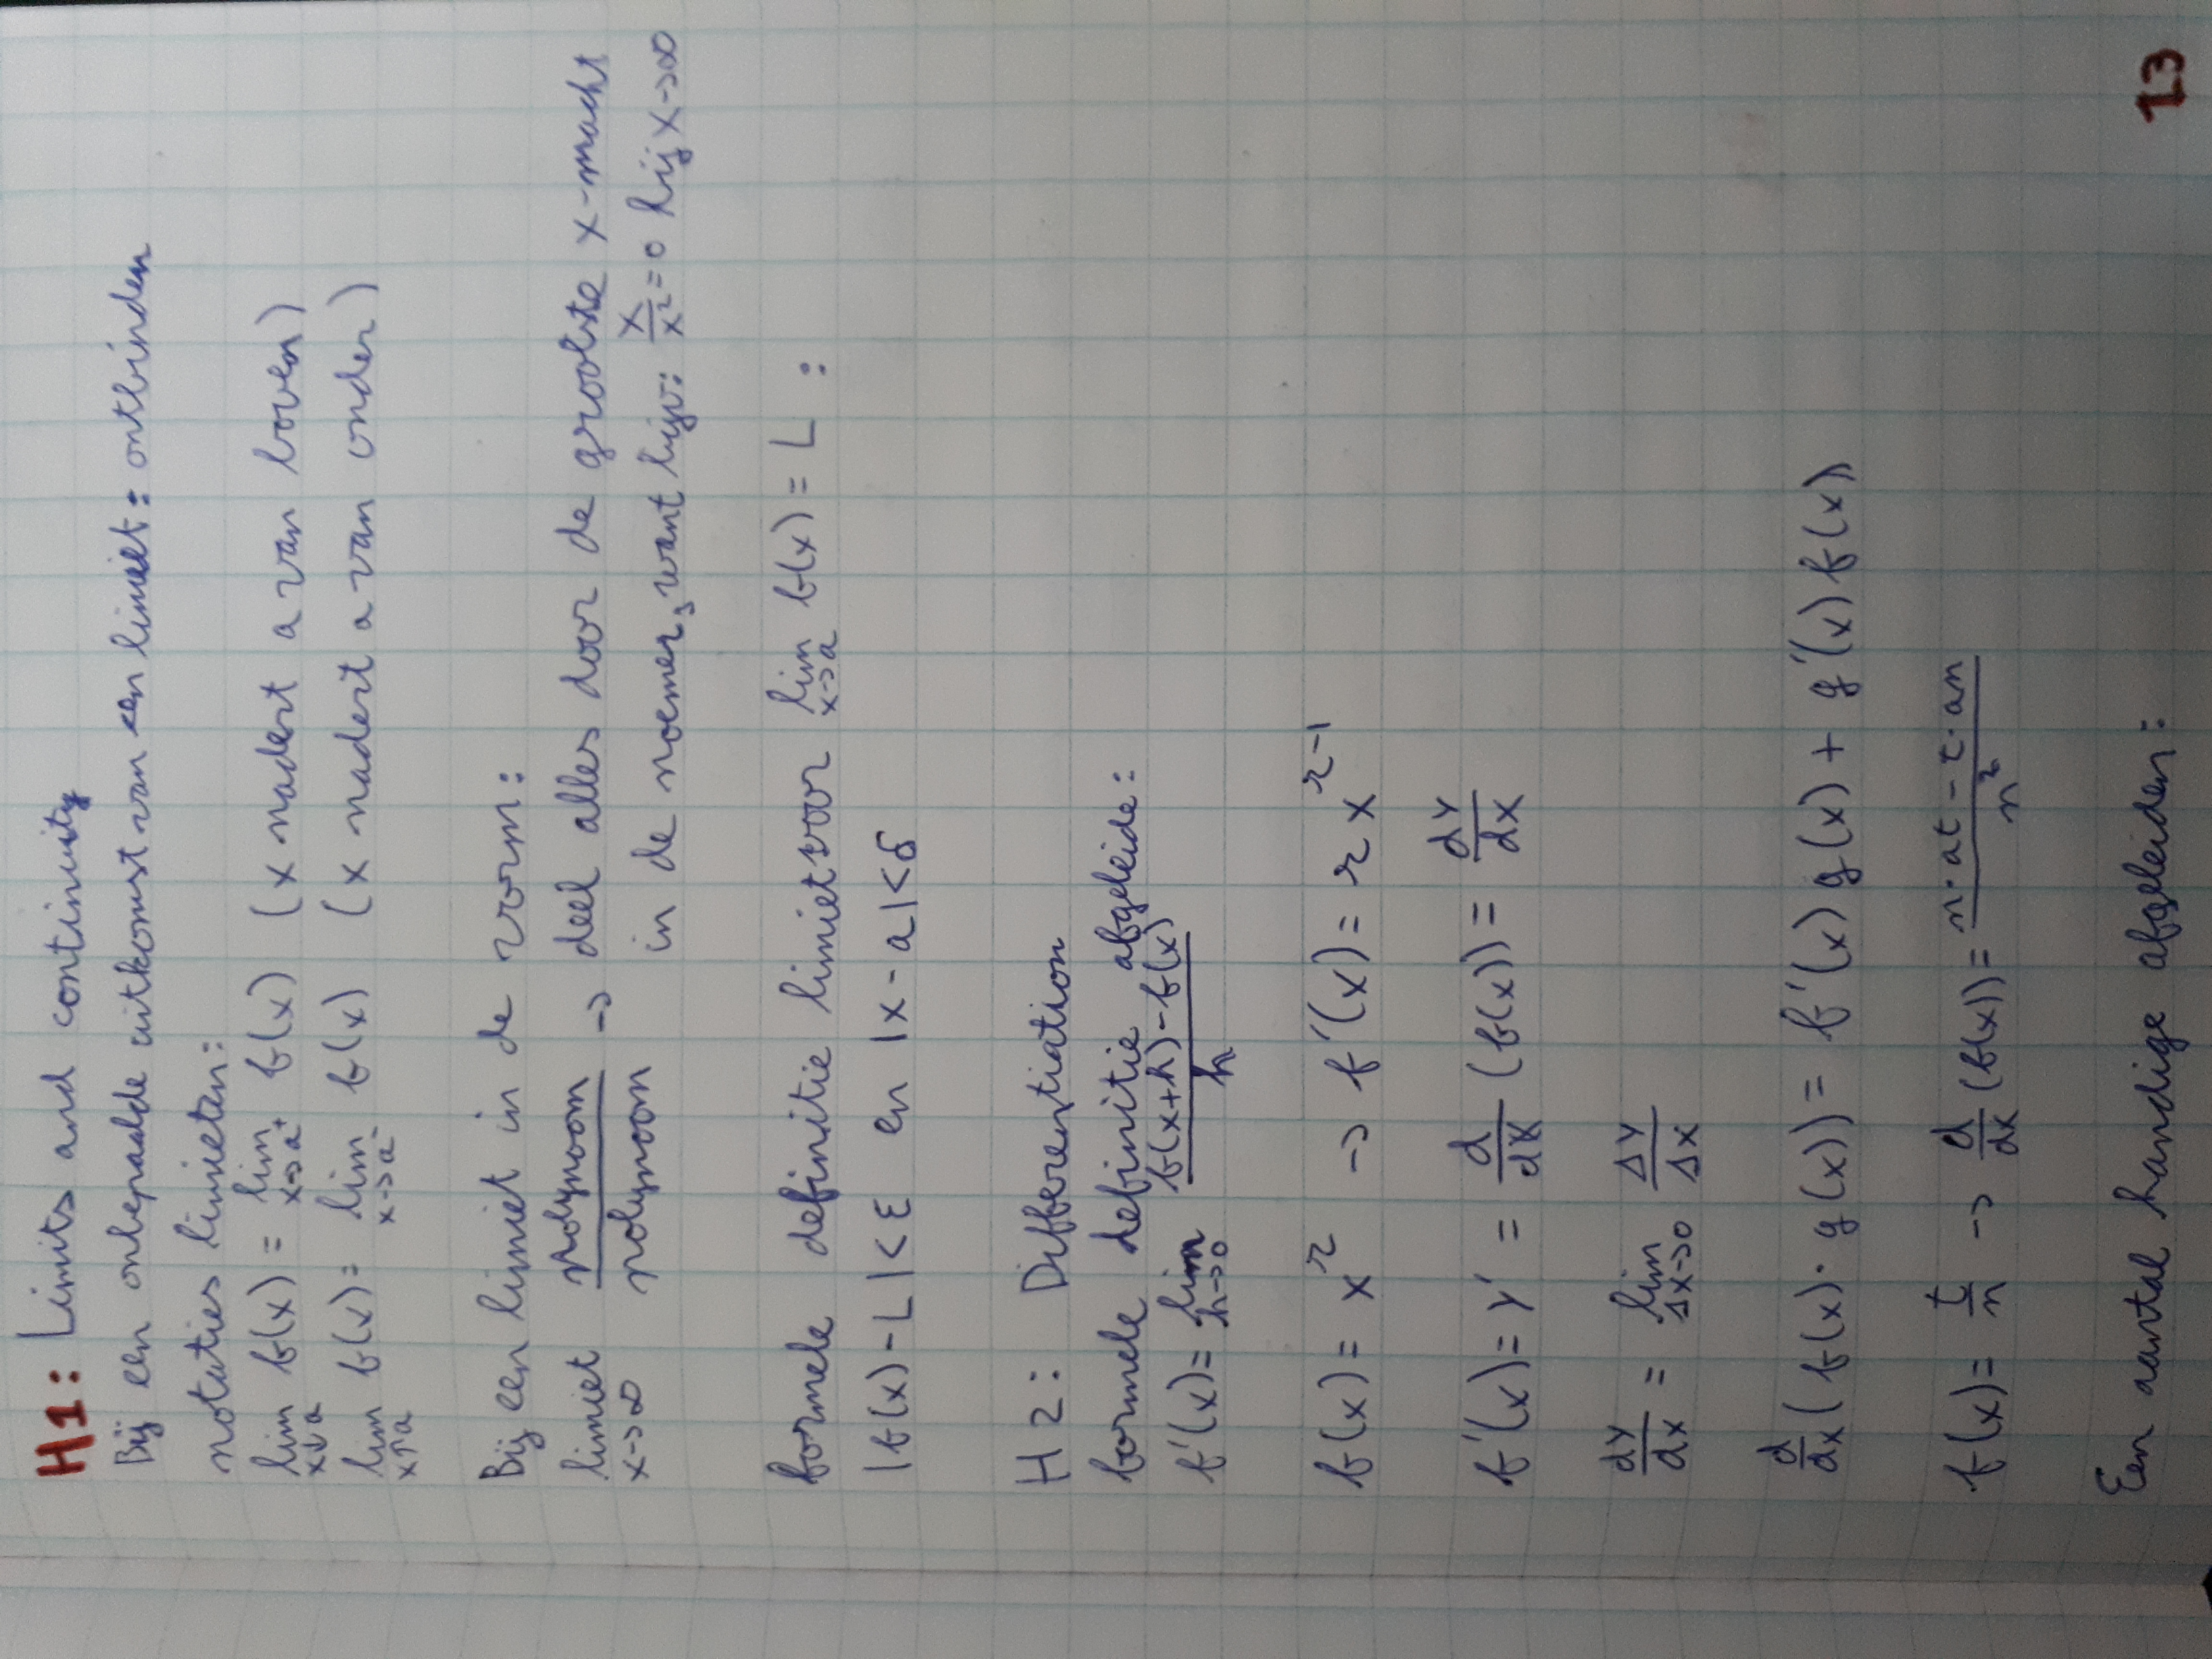 H1: Limits and continuity
Bij een onbepaalde uitkomst van een limiet: ontbinden
notaties limieten:
lim x↓a f(x) = lim x→a⁺ f(x) (x nadert a van boven)
lim x↑a f(x) = lim x→a⁻ f(x) (x nadert a van onder)
Bij een limiet in de vorm:
limiet x→∞ polynoom/polynoom → deel alles door de grootste x-macht
in de noemer, want bijv: x/x² = 0 bij x→∞
formele definitie limiet voor lim x→a f(x) = L :
|f(x)-L|<ε en |x-a|<δ
H2: Differentiation
formele definitie afgeleide:
f'(x) = lim h→0 (f(x+h)-f(x))/h
f(x) = x^r → f'(x) = r x^(r-1)
f'(x) = y' = d/dx (f(x)) = dy/dx
dy/dx = lim Δx→0 Δy/Δx
d/dx (f(x)·g(x)) = f'(x)g(x) + g'(x)f(x)
f(x) = t/n → d/dx (f(x)) = (n·at - t·an)/n²
Een aantal handige afgeleiden:
13